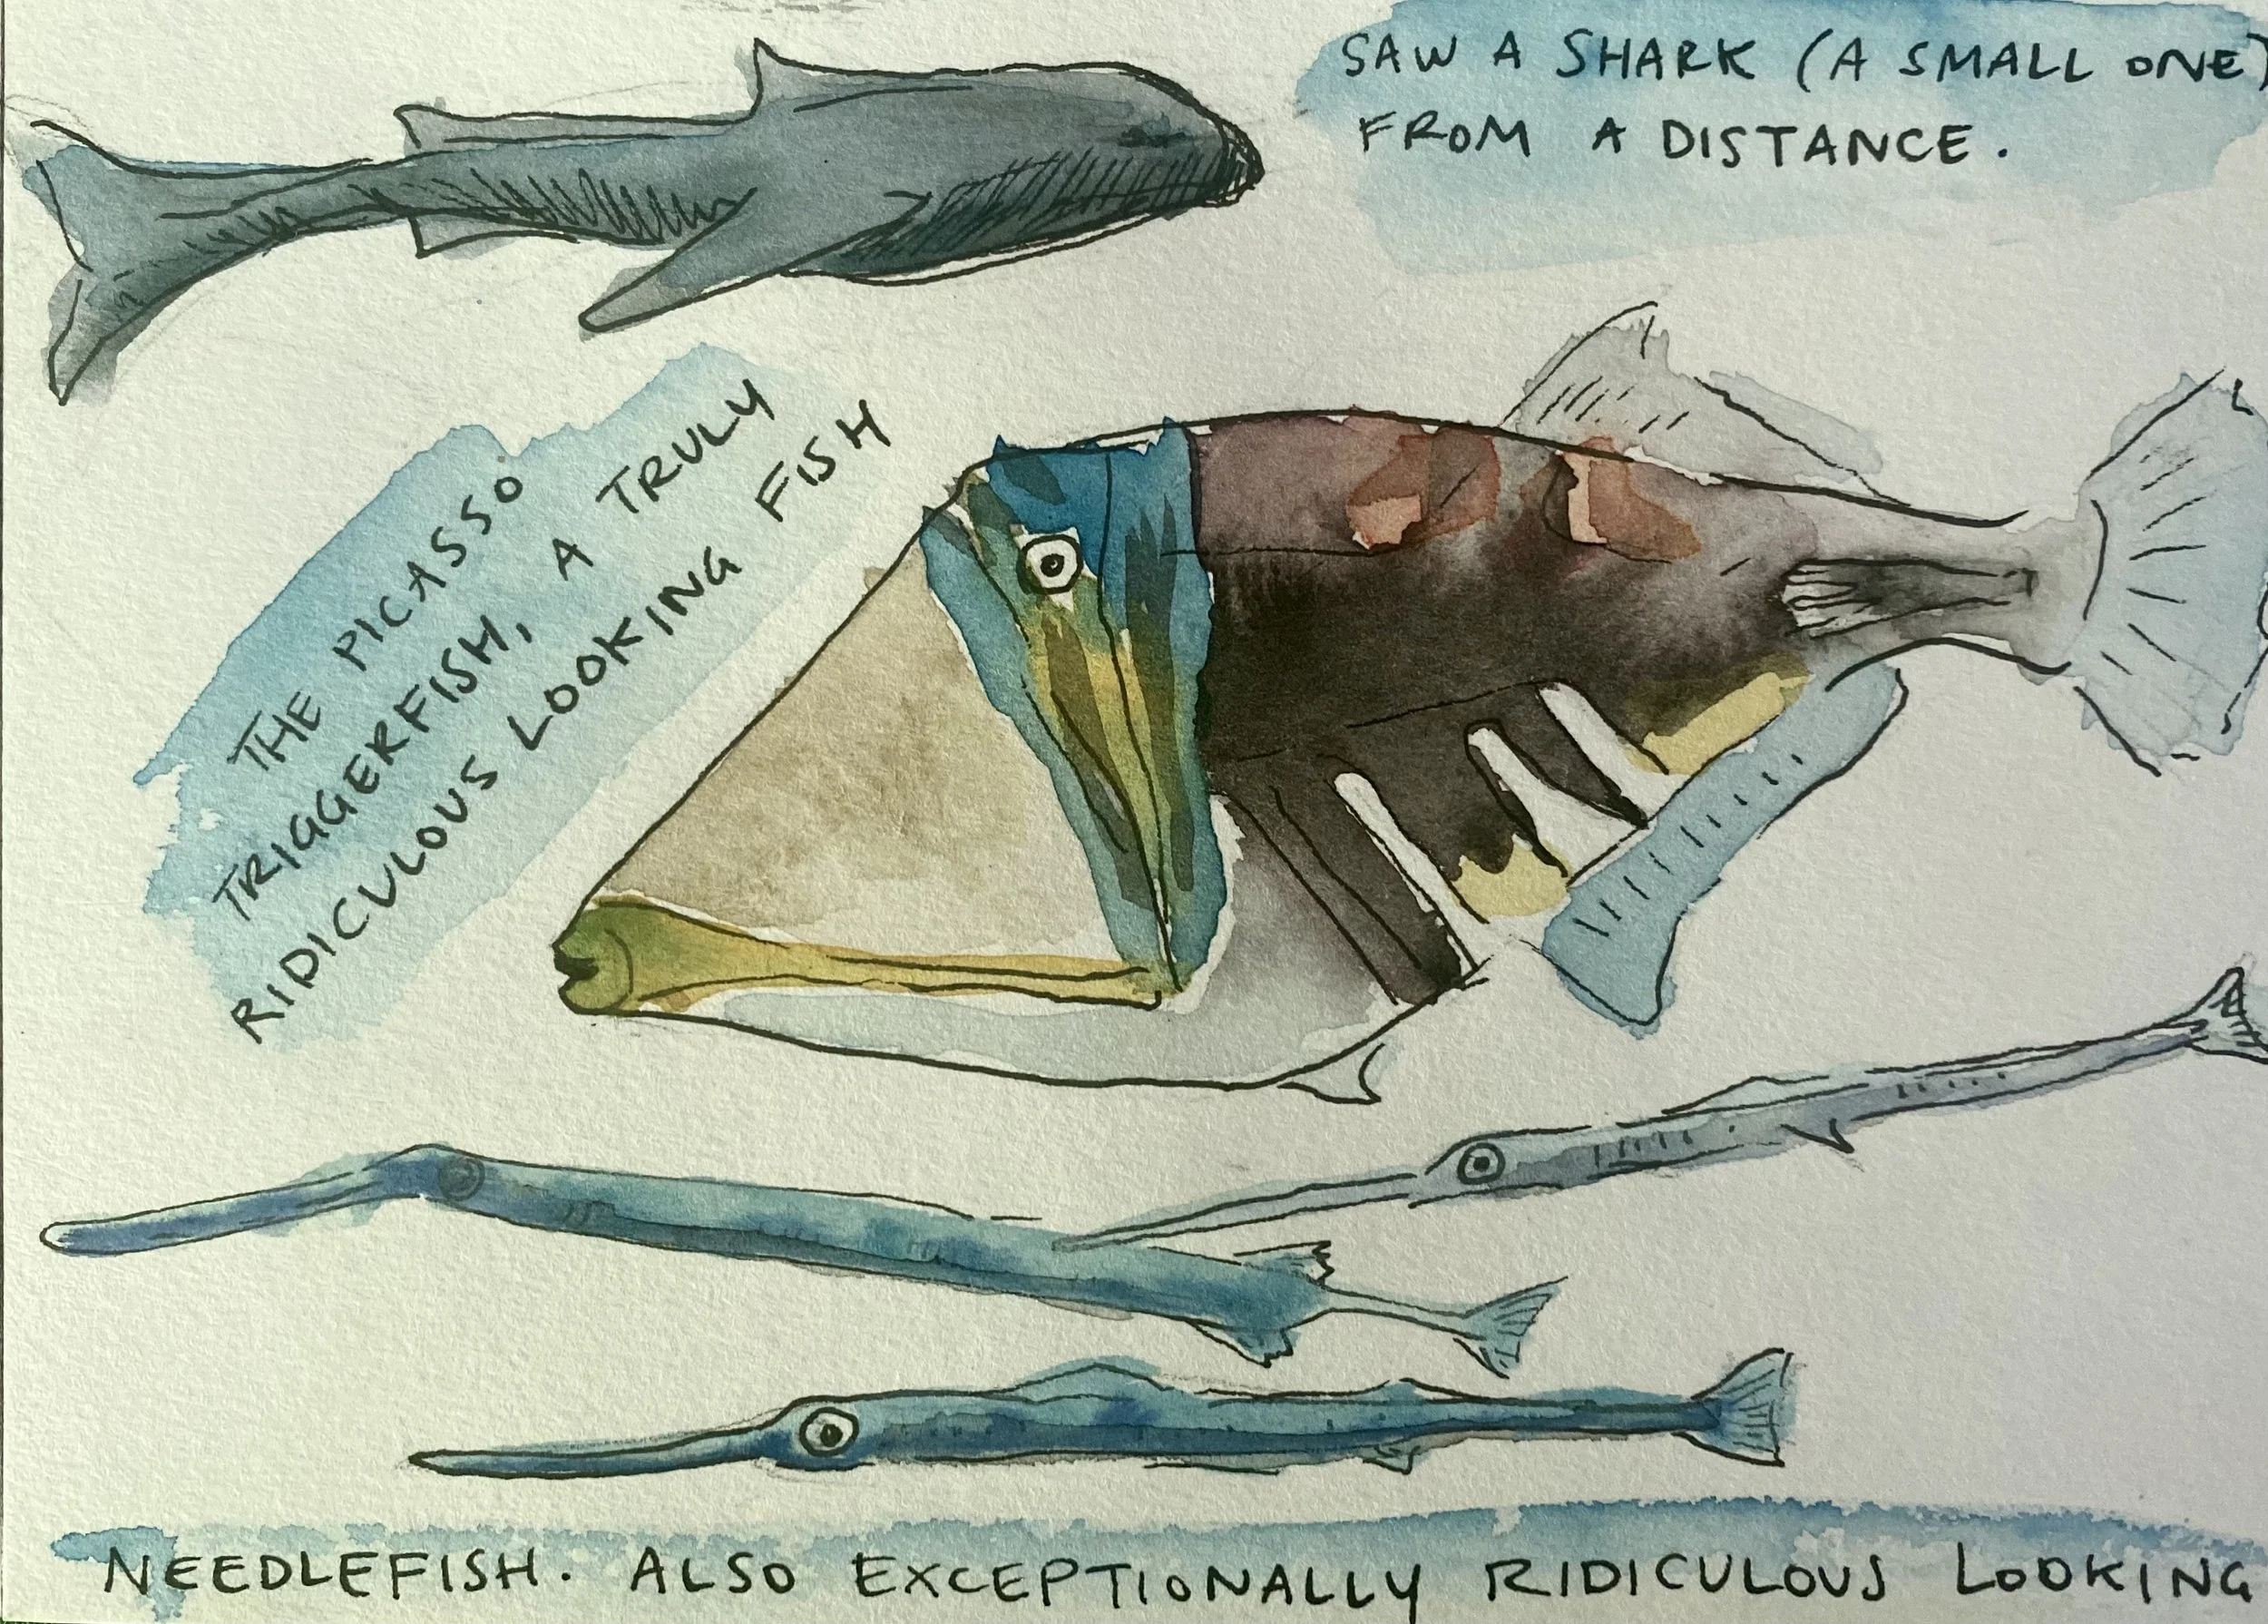 SAW A SHARK (A SMALL ONE)
FROM A DISTANCE.
THE PICASSO
TRIGGERFISH, A TRULY
RIDICULOUS LOOKING FISH
NEEDLEFISH. ALSO EXCEPTIONALLY RIDICULOUS LOOKING